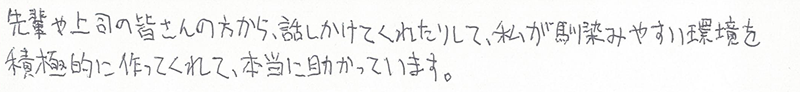 先輩や上司の皆さんの方から、話しかけてくれたりして、私が馴染みやすい環境を
積極的に作ってくれて、本当に助かっています。